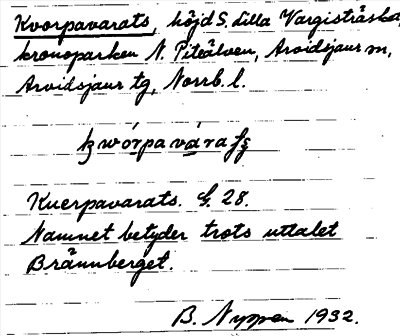 Kvorpavarats, höjd S. Lilla Vargisträska,
kronoparken N. Piteälven, Arvidsjaur m,
Arvidsjaur tg, Norrb. l.
Kuerpavarats. G. 28.
Namnet betyder trots uttalet
Brännberget.
B. Nyppen 1932.